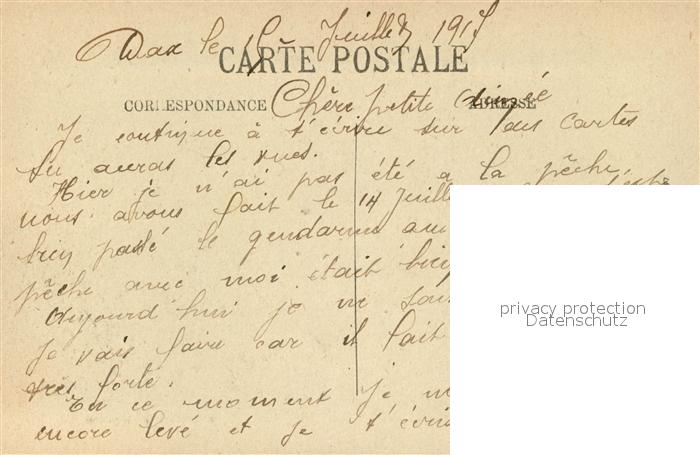 Dax le 15 Juillet 191
CARTE POSTALE
CORRESPONDANCE
ADRESSE
Chère petite aimée
Je continue à t'écrire sur des cartes
tu auras les vues.
Hier je n'ai pas été à la pêche
nous avons fait le 14 Juillet
bien passé le gendarme
pêche avec moi était bien
Aujourd'hui je ne
Je vais faire car il fait
très forte.
En ce moment je
encore levé et je t'écris
privacy protection
Datenschutz